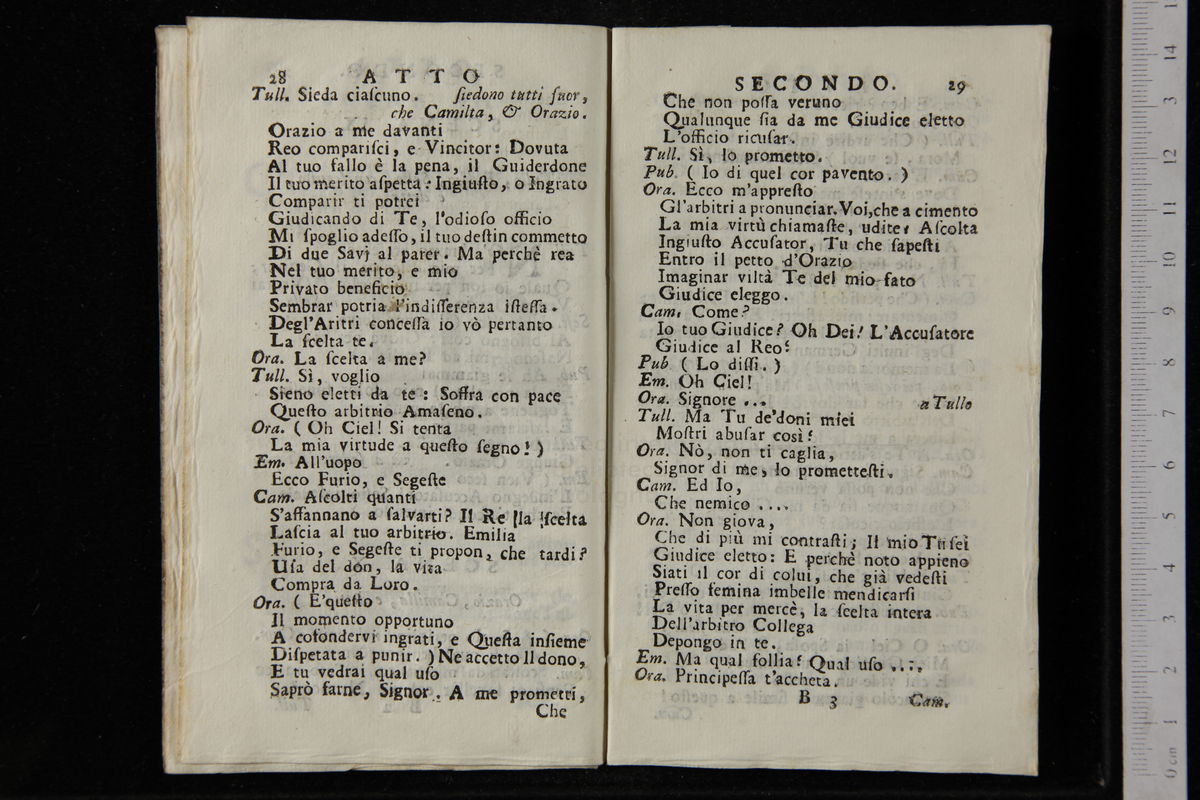 28 ATTO
Tull. Sieda ciaſcuno. ſiedono tutti fuor,
che Camilla, & Orazio.
Orazio a me davanti
Reo compariſci, e Vincitor: Dovuta
Al tuo fallo è la pena, il Guiderdone
Il tuo merito aſpetta: Ingiuſto, o Ingrato
Comparir ti potrei
Giudicando di Te, l'odioſo officio
Mi ſpoglio adeſſo, il tuo deſtin commetto
Di due Savj al parer. Ma perchè rea
Nel tuo merito, e mio
Privato beneficio
Sembrar potria l'indifferenza iſteſſa.
Degl'Aritri conceſſa io vò pertanto
La ſcelta te.
Ora. La ſcelta a me?
Tull. Sì, voglio
Sieno eletti da te: Soffra con pace
Queſto arbitrio Amaſeno.
Ora. (Oh Ciel! Si tenta
La mia virtude a queſto ſegno!)
Em. All'uopo
Ecco Furio, e Segeſte
Cam. Aſcolti quanti
S'affannano a ſalvarti? Il Re la ſcelta
Laſcia al tuo arbitrio. Emilia
Furio, e Segeſte ti propon, che tardi?
Uſa del don, la vita
Compra da Loro.
Ora. ( E'queſto
Il momento opportuno
A cofondervi ingrati, e Queſta inſieme
Diſpetata a punir. ) Ne accetto Il dono,
E tu vedrai qual uſo
Saprò farne, Signor. A me prometti,
Che
SECONDO. 29
Che non poſſa veruno
Qualunque ſia da me Giudice eletto
L'officio ricuſar.
Tull. Sì, lo prometto.
Pub. ( Io di quel cor pavento. )
Ora. Ecco m'appreſto
Gl'arbitri a pronunciar. Voi, che a cimento
La mia virtù chiamaſte, udite, Aſcolta
Ingiuſto Accuſator, Tu che ſapeſti
Entro il petto d'Orazio
Imaginar viltà Te del mio fato
Giudice eleggo.
Cam. Come?
Io tuo Giudice? Oh Dei! L'Accuſatore
Giudice al Reo?
Pub ( Lo diſſi. )
Em. Oh Ciel!
Ora. Signore ... a Tullo
Tull. Ma Tu de'doni miei
Moſtri abuſar così?
Ora. Nò, non ti caglia,
Signor di me, lo prometteſti.
Cam. Ed Io,
Che nemico ....
Ora. Non giova,
Che di più mi contraſti; Il mio Tu ſei
Giudice eletto: E perchè noto appieno
Siati il cor di colui, che già vedeſti
Preſſo femina imbelle mendicarſi
La vita per mercè, la ſcelta intera
Dell'arbitro Collega
Depongo in te.
Em. Ma qual follia? Qual uſo ....
Ora. Principeſſa t'accheta.
B 3 Cam.